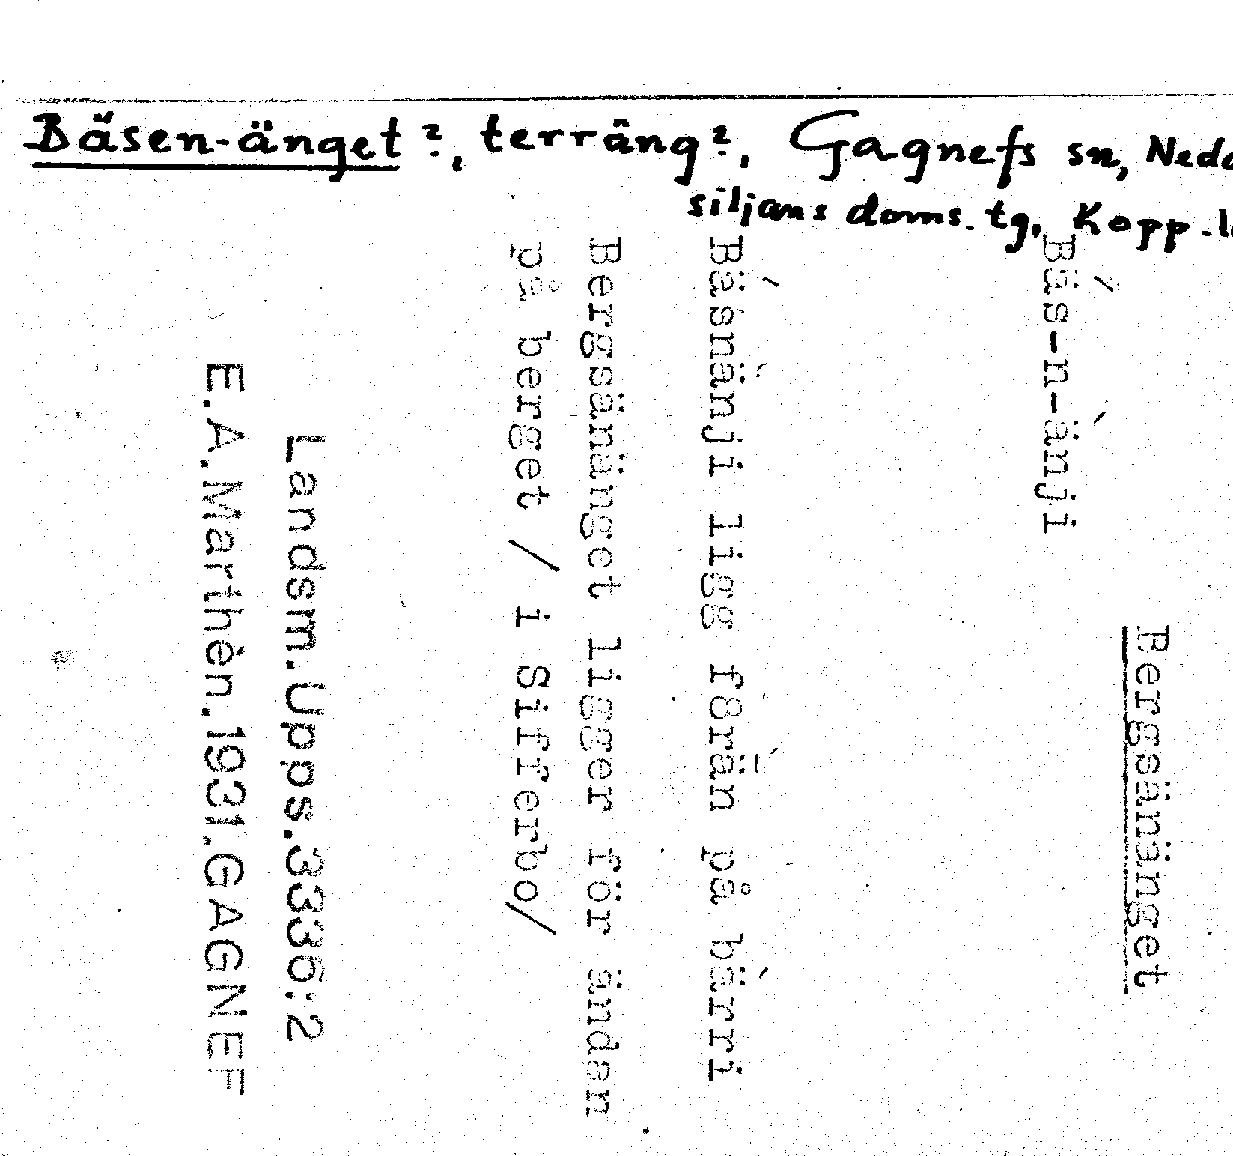 Bäsen-änget?, terräng?, Gagnefs sn, Neda
siljans doms. tg, Kopp.l
Bergsänänget
Bäs-n-änji
Bäsnänji ligg förän på bärri
Bergsänänget ligger för ändan
på berget / i Sifferbo/
Landsm.Upps.3336:2
E.A.Marthèn.1931.GAGNEF